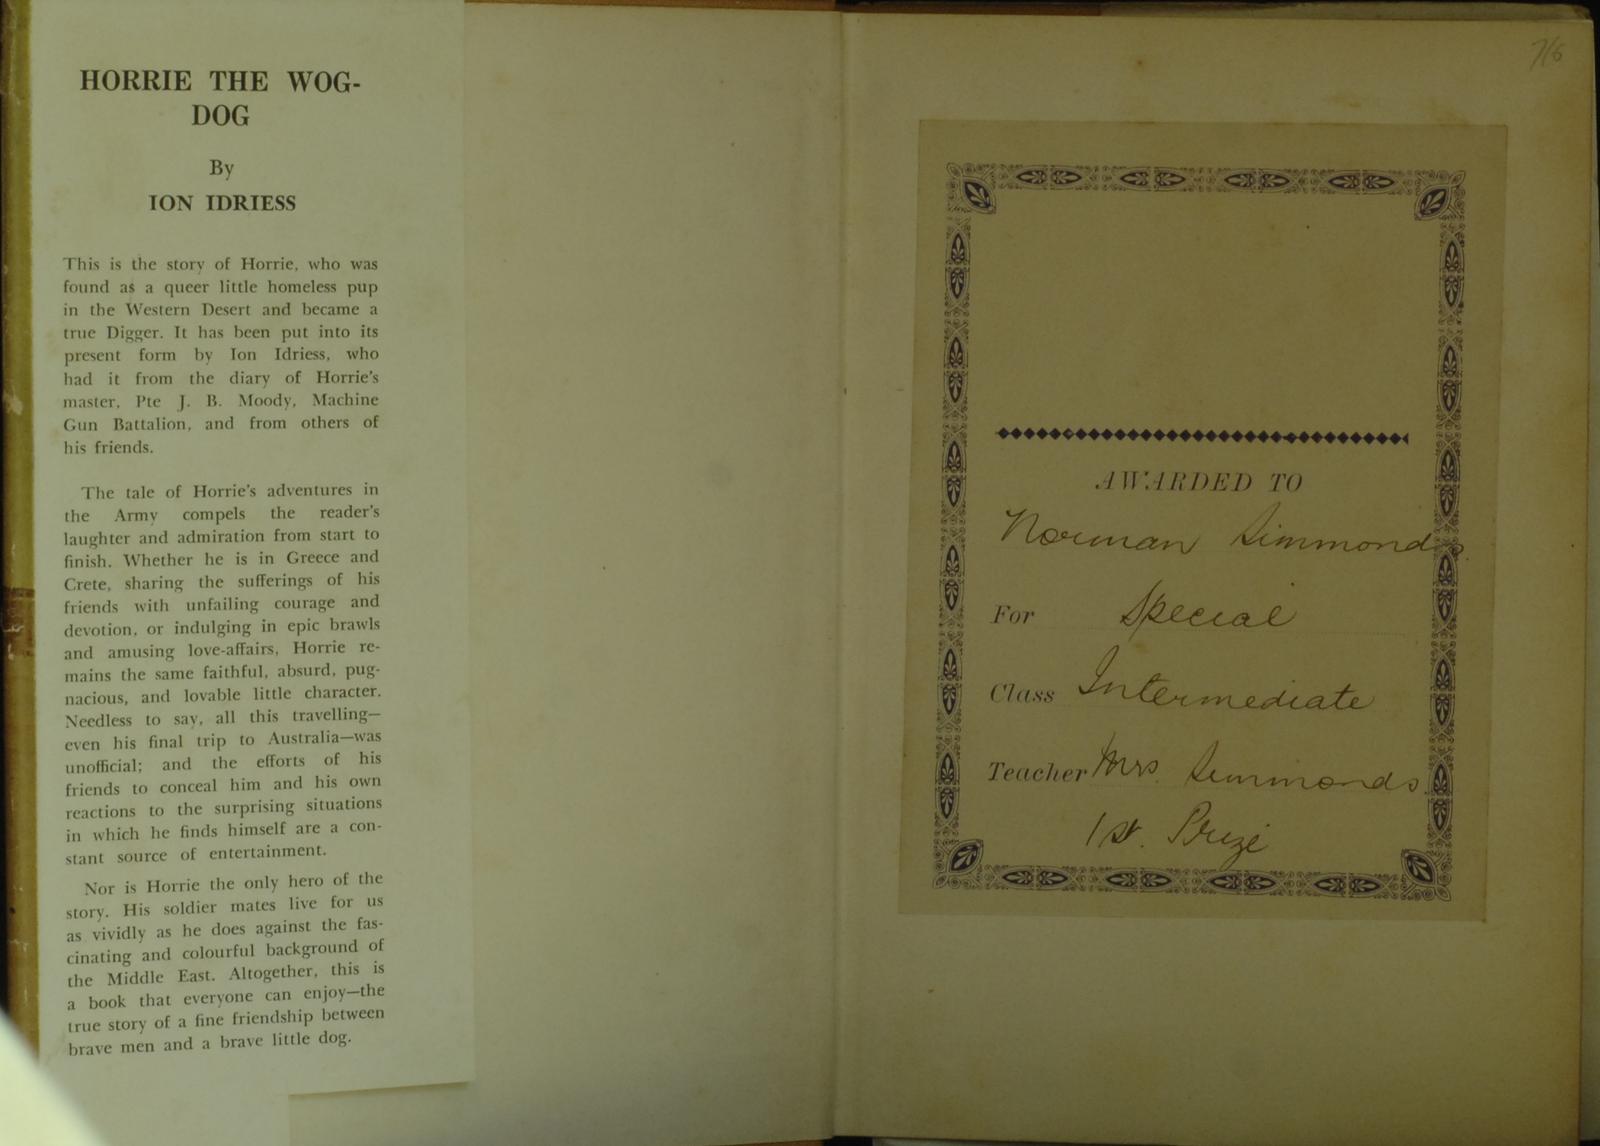 HORRIE THE WOG-
DOG
By
ION IDRIESS
This is the story of Horrie, who was
found as a queer little homeless pup
in the Western Desert and became a
true Digger. It has been put into its
present form by Ion Idriess, who
had it from the diary of Horrie's
master, Pte J. B. Moody, Machine
Gun Battalion, and from others of
his friends.
The tale of Horrie's adventures in
the Army compels the reader's
laughter and admiration from start to
finish. Whether he is in Greece and
Crete, sharing the sufferings of his
friends with unfailing courage and
devotion, or indulging in epic brawls
and amusing love-affairs, Horrie re-
mains the same faithful, absurd, pug-
nacious, and lovable little character.
Needless to say, all this travelling—
even his final trip to Australia—was
unofficial; and the efforts of his
friends to conceal him and his own
reactions to the surprising situations
in which he finds himself are a con-
stant source of entertainment.
Nor is Horrie the only hero of the
story. His soldier mates live for us
as vividly as he does against the fas-
cinating and colourful background of
the Middle East. Altogether, this is
a book that everyone can enjoy—the
true story of a fine friendship between
brave men and a brave little dog.
7/6
AWARDED TO
Norman Simmonds.
For Special
Class Intermediate
Teacher Mrs. Simmonds.
1st. Prize